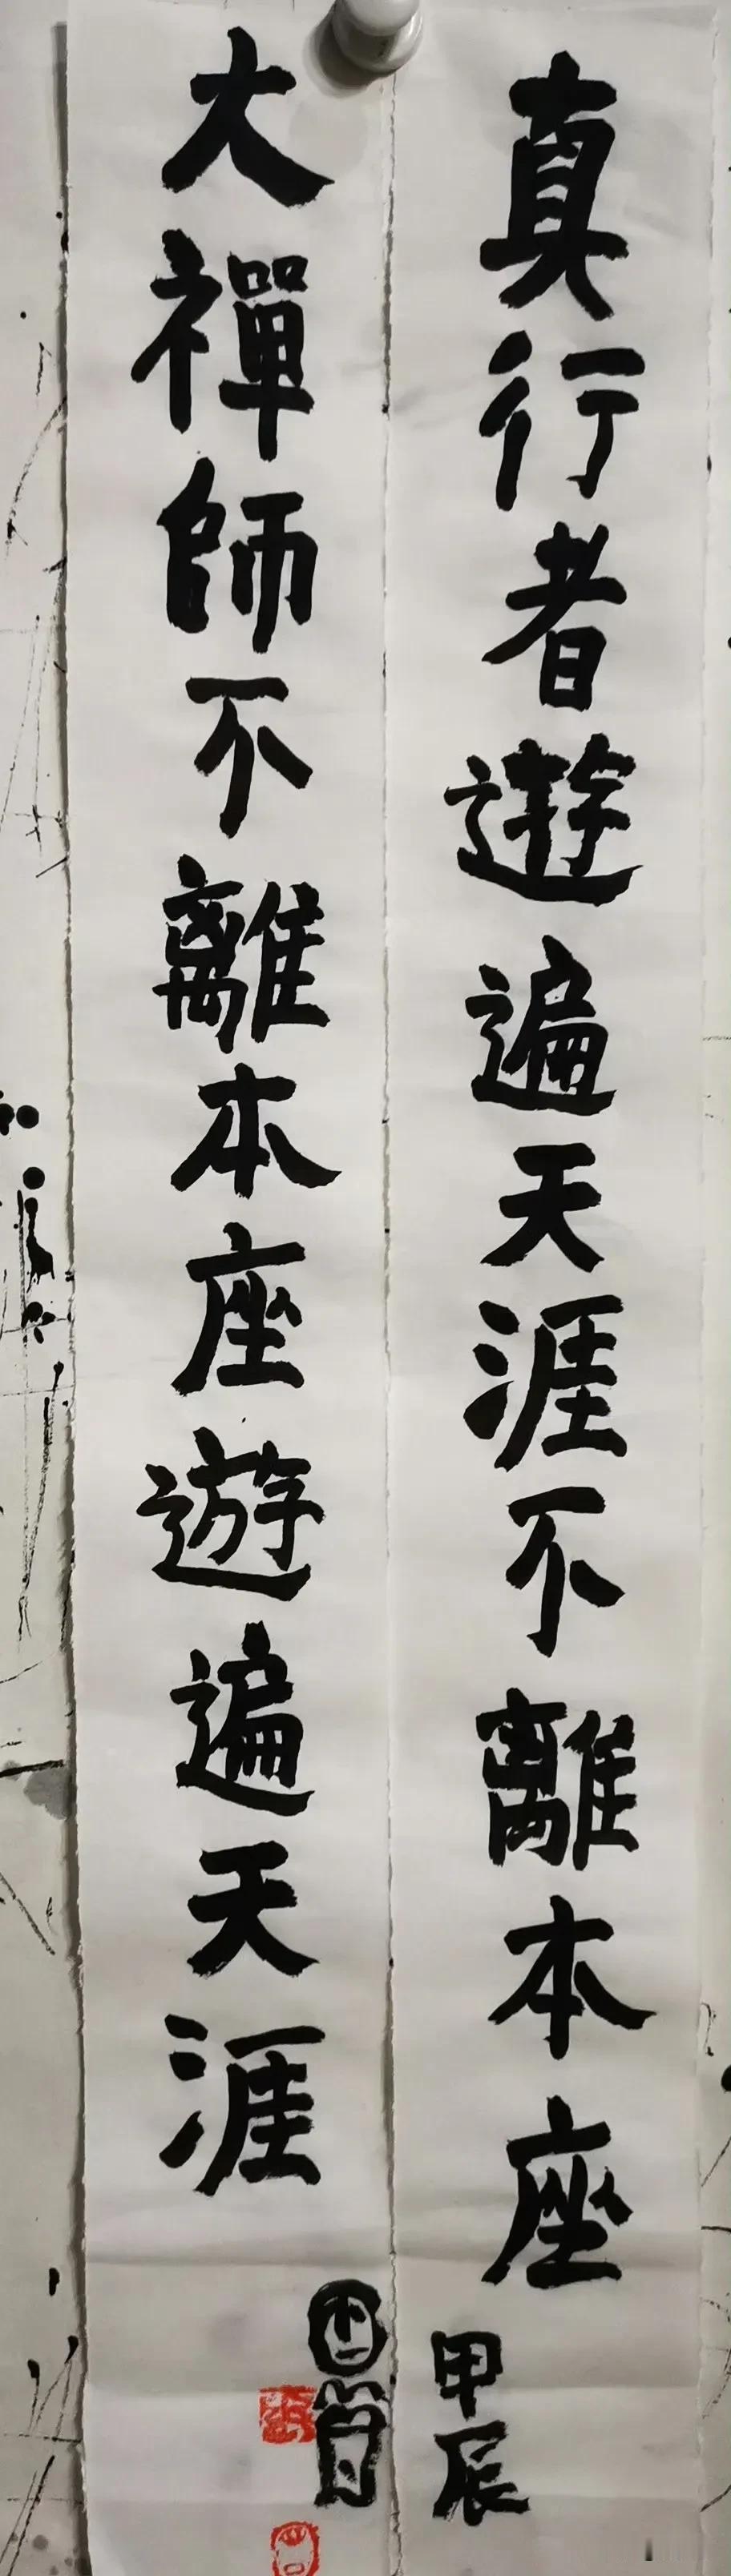 真行者遊遍天涯不離本座
甲辰
大禪師不離本座遊遍天涯